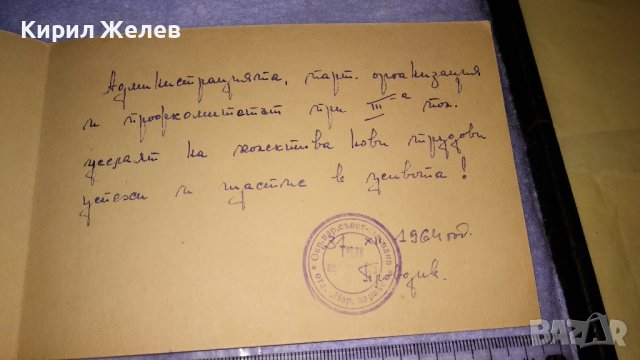 Кирил Желев
Администрацията, парт. организация
и профкомитетът при III-а пол.
желаят на колектива нови трудови
успехи и щастие в живота!
31 XII 1964 год.
Пловдив.
Окр. нар. съвет - Пловдив
отд. "Нар. здраве"
ТРЕТА
BAZAR.BG